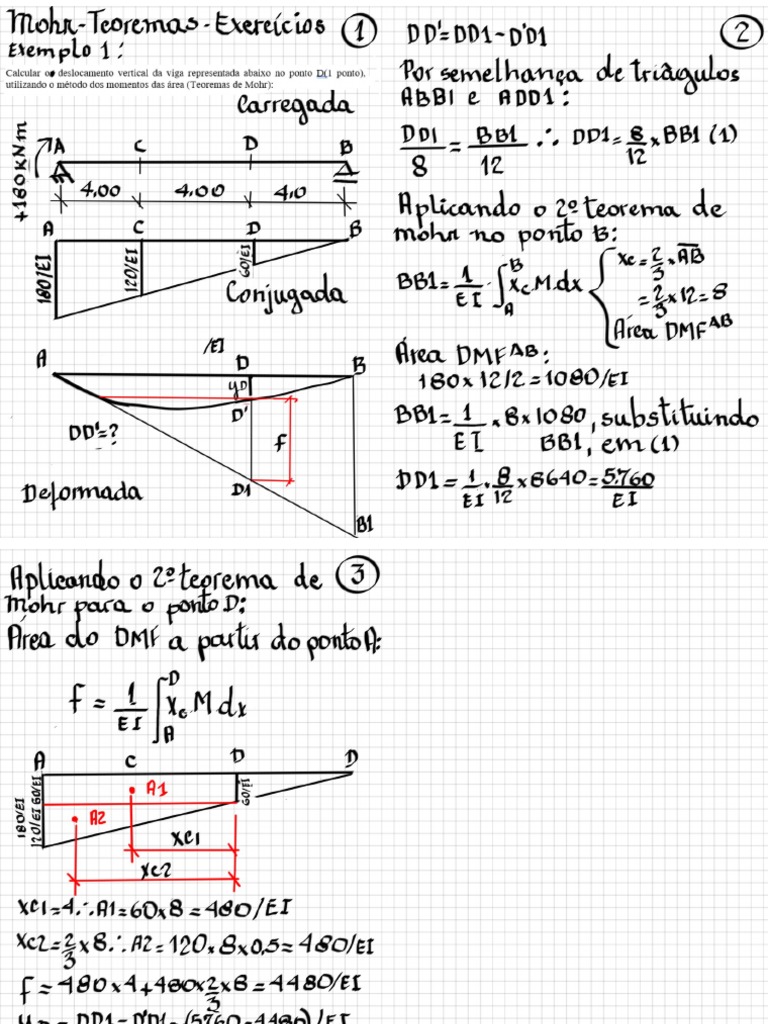 Mohr-Teoremas-Exercícios 1
Exemplo 1:
Calcular o deslocamento vertical da viga representada abaixo no ponto D(1 ponto),
utilizando o método dos momentos das área (Teoremas de Mohr):
Carregada
+180kNm
A C D B
4,00 4,00 4,0
A C D B
180/EI 120/EI 60/EI
Conjugada
/EI
A D B
yD
D'
DD'=? f
Deformada D1
B1
DD'=DD1-D'D1 2
Por semelhança de triângulos
ABB1 e ADD1:
DD1/8 = BB1/12 ∴ DD1=8/12 x BB1 (1)
Aplicando o 2º teorema de
mohr no ponto B:
BB1=1/EI . ∫_A^B xc.M.dx { xc=2/3 . AB
=2/3 x 12=8
Área DMF^AB
Área DMF^AB:
180x12/2=1080/EI
BB1=1/EI . 8x1080, substituindo
BB1, em (1)
DD1=1/EI . 8/12 x 8640=5.760/EI
Aplicando o 2º teorema de 3
Mohr para o ponto D:
Área do DMF a partir do ponto A:
f = 1/EI ∫_A^D xc M dx
A C D D
180/EI 120/EI 60/EI A1 60/EI
A2
xc1
xc2
xc1=4∴A1=60x8=480/EI
xc2=2/3x8∴A2=120.8x0,5=480/EI
f=480x4+480x2/3x8=4480/EI
DD1-D'D1=(5760-4480)/EI